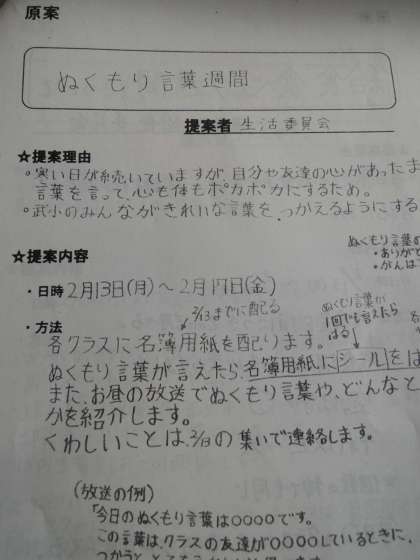 原案
ぬくもり言葉週間
提案者 生活委員会
★提案理由
・寒い日が続いていますが、自分や友達の心があったま
言葉を言って、心も体もポカポカにするため。
・武小のみんながきれいな言葉をつかえるようにする
ぬくもり言葉の
・ありがと
・がんば
★提案内容
・日時 2月13日(月)〜2月17日(金)
2/13までに配る
ぬくもり言葉が
1回でも言えたら
はる
・方法
各クラスに名簿用紙を配ります。
ぬくもり言葉が言えたら、名簿用紙にシールをは
また、お昼の放送でぬくもり言葉や、どんなと
かを紹介します。
くわしいことは、の集いで連絡します。
(放送の例)
「今日のぬくもり言葉は○○○○です。
この言葉は、クラスの友達が○○○○しているときに、